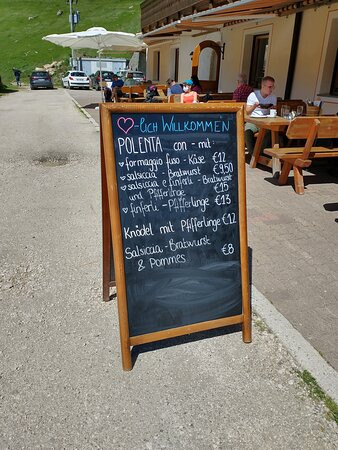 ♥-lich Willkommen
POLENTA - con - mit
♥ formaggio fuso - Käse €12
♥ salsiccia - Bratwurst €9,50
♥ salsiccia e finferli - Bratwurst
und Pfifferlinge €15
♥ finferli - Pfifferlinge €13
Knödel mit Pfifferlinge €12
Salsiccia - Bratwurst
& Pommes €8